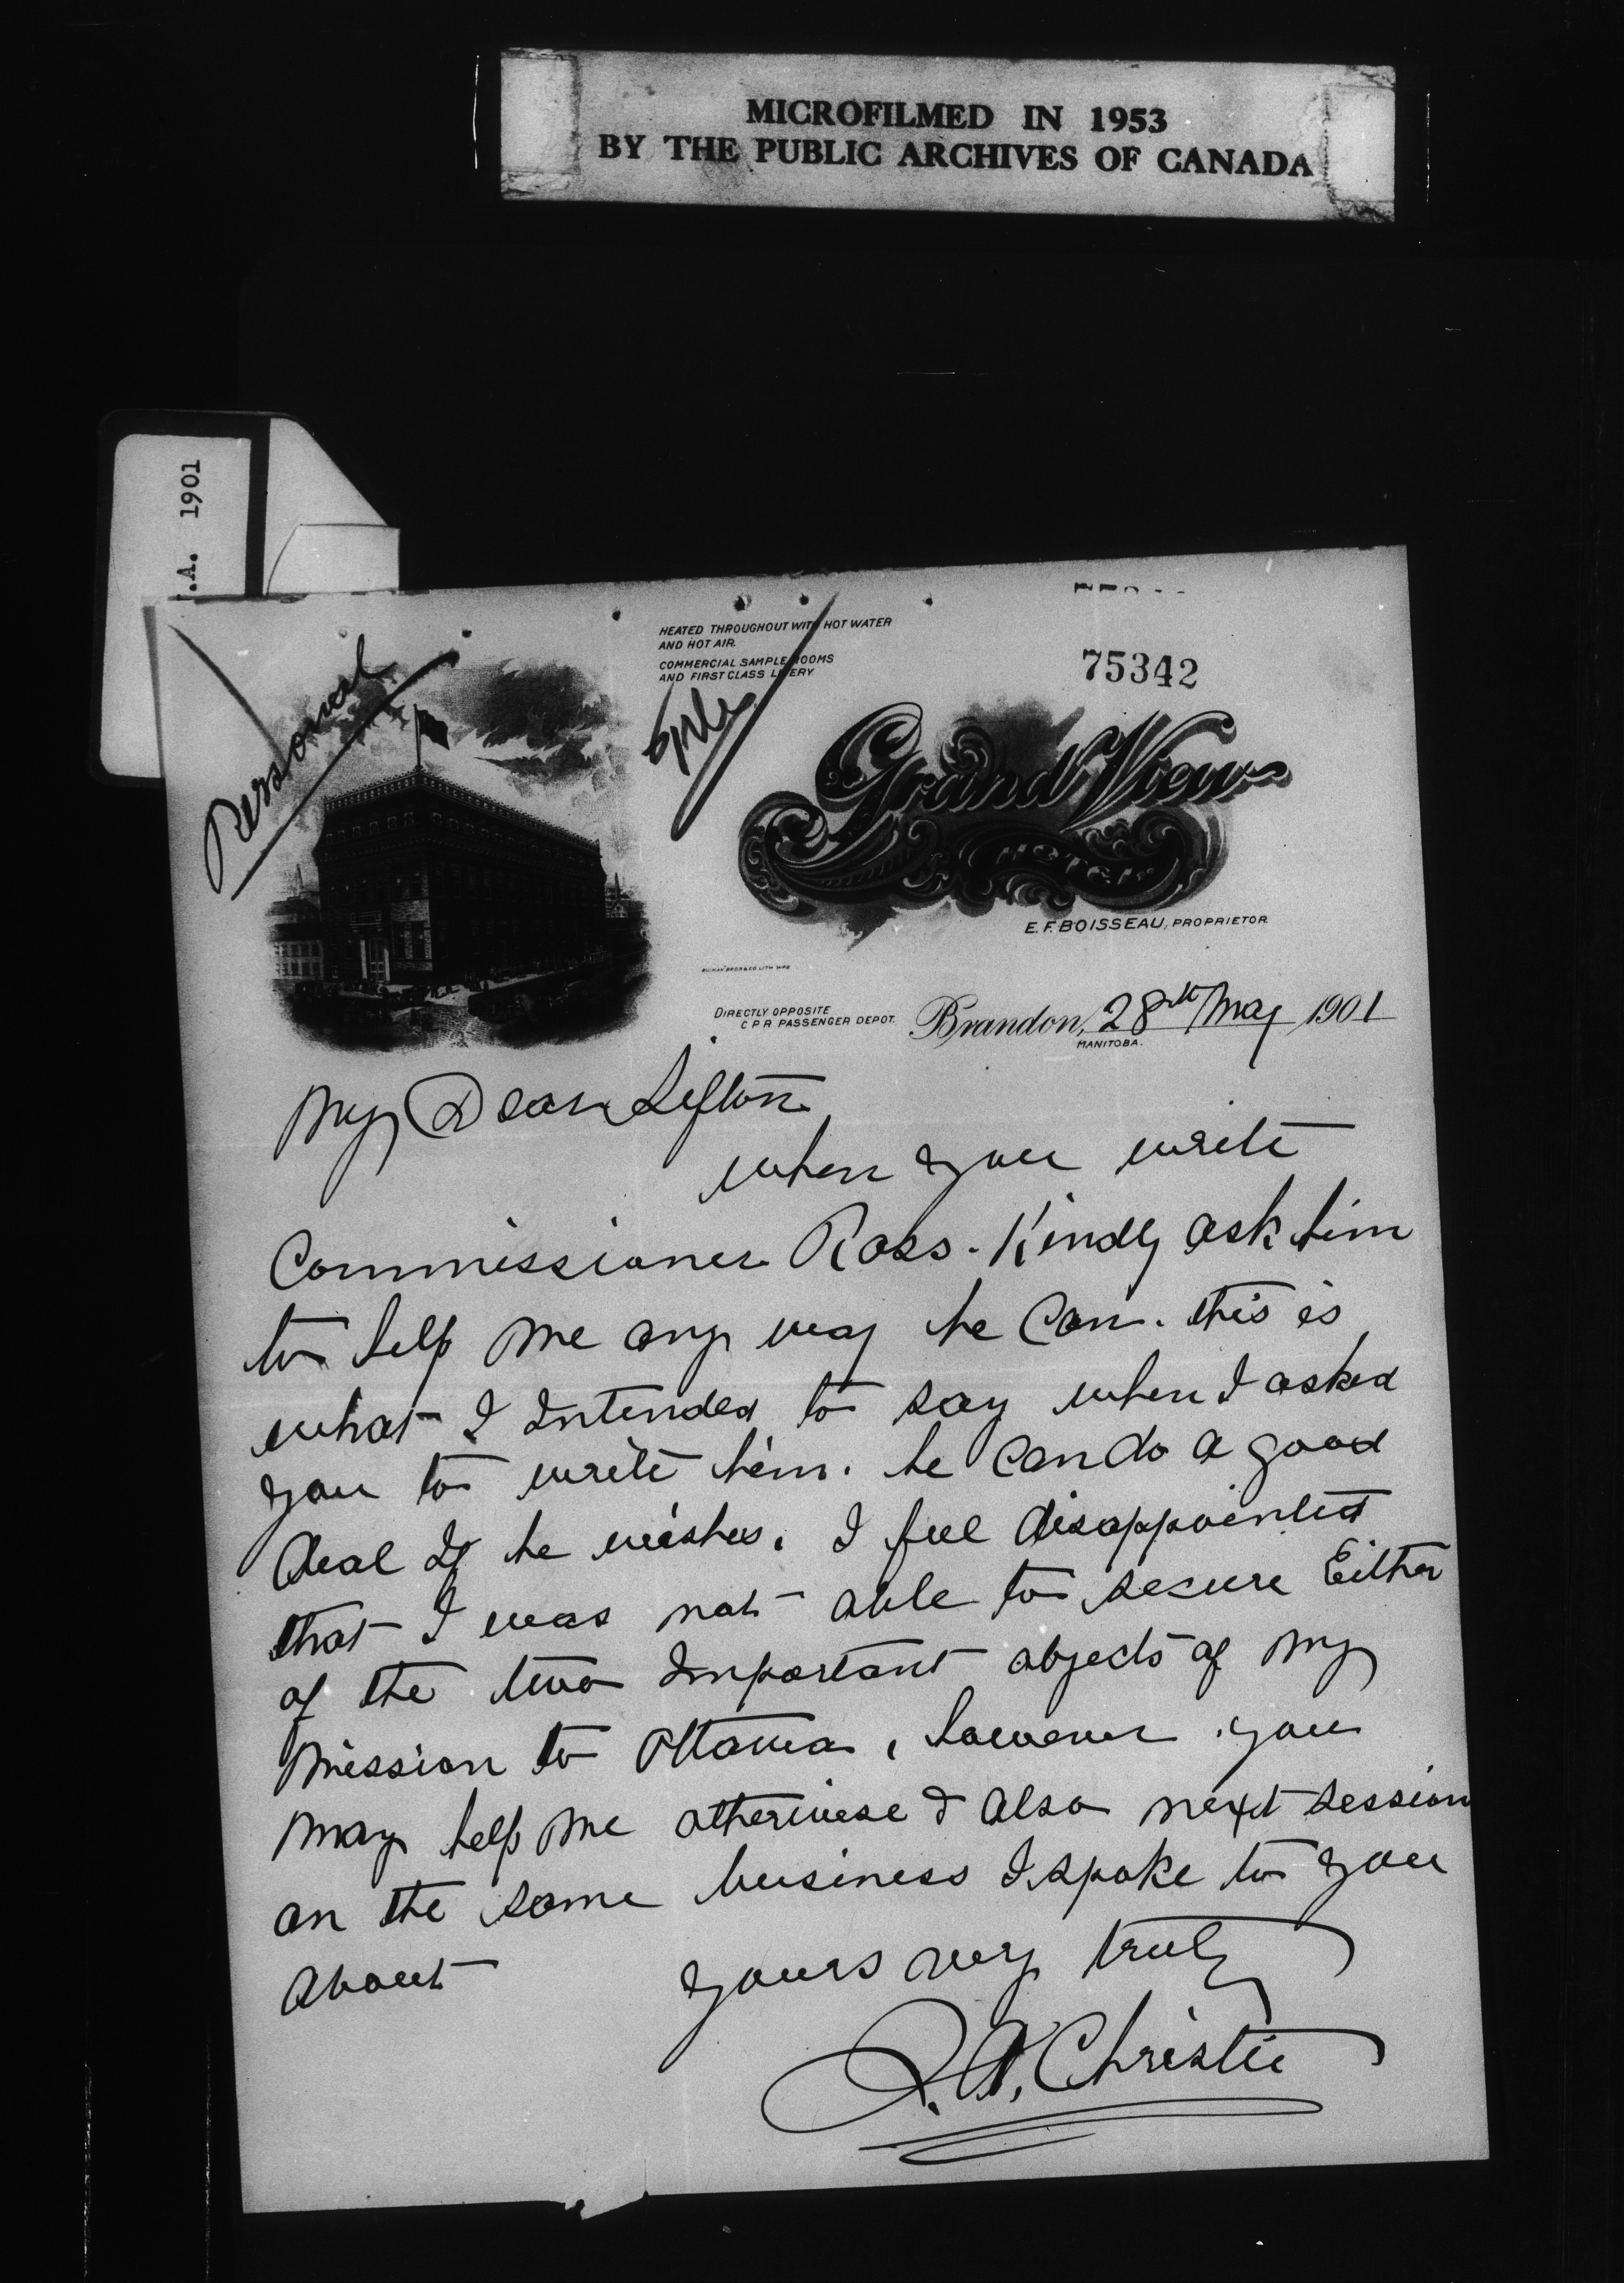 MICROFILMED IN 1953
BY THE PUBLIC ARCHIVES OF CANADA
.A. 1901
HEATED THROUGHOUT WITH HOT WATER
AND HOT AIR.
COMMERCIAL SAMPLE ROOMS
AND FIRST CLASS LIVERY
75342
Personal
Grand View
HOTEL
E. F. BOISSEAU, PROPRIETOR
DIRECTLY OPPOSITE
C P R PASSENGER DEPOT.
Brandon, 28th May 1901
MANITOBA.
My Dear Sifton
when you write
Commissioner Ross. Kindly ask him
to help me any way he Can. this is
what I Intended to say when I asked
you to write him. he Can do a good
deal If he wishes. I feel disappointed
that I was not able to secure Either
of the two Important objects of my
Mission to Ottawa, however you
may help me otherwise & also next session
on the same business I spoke to you
about
yours very truly
Christie